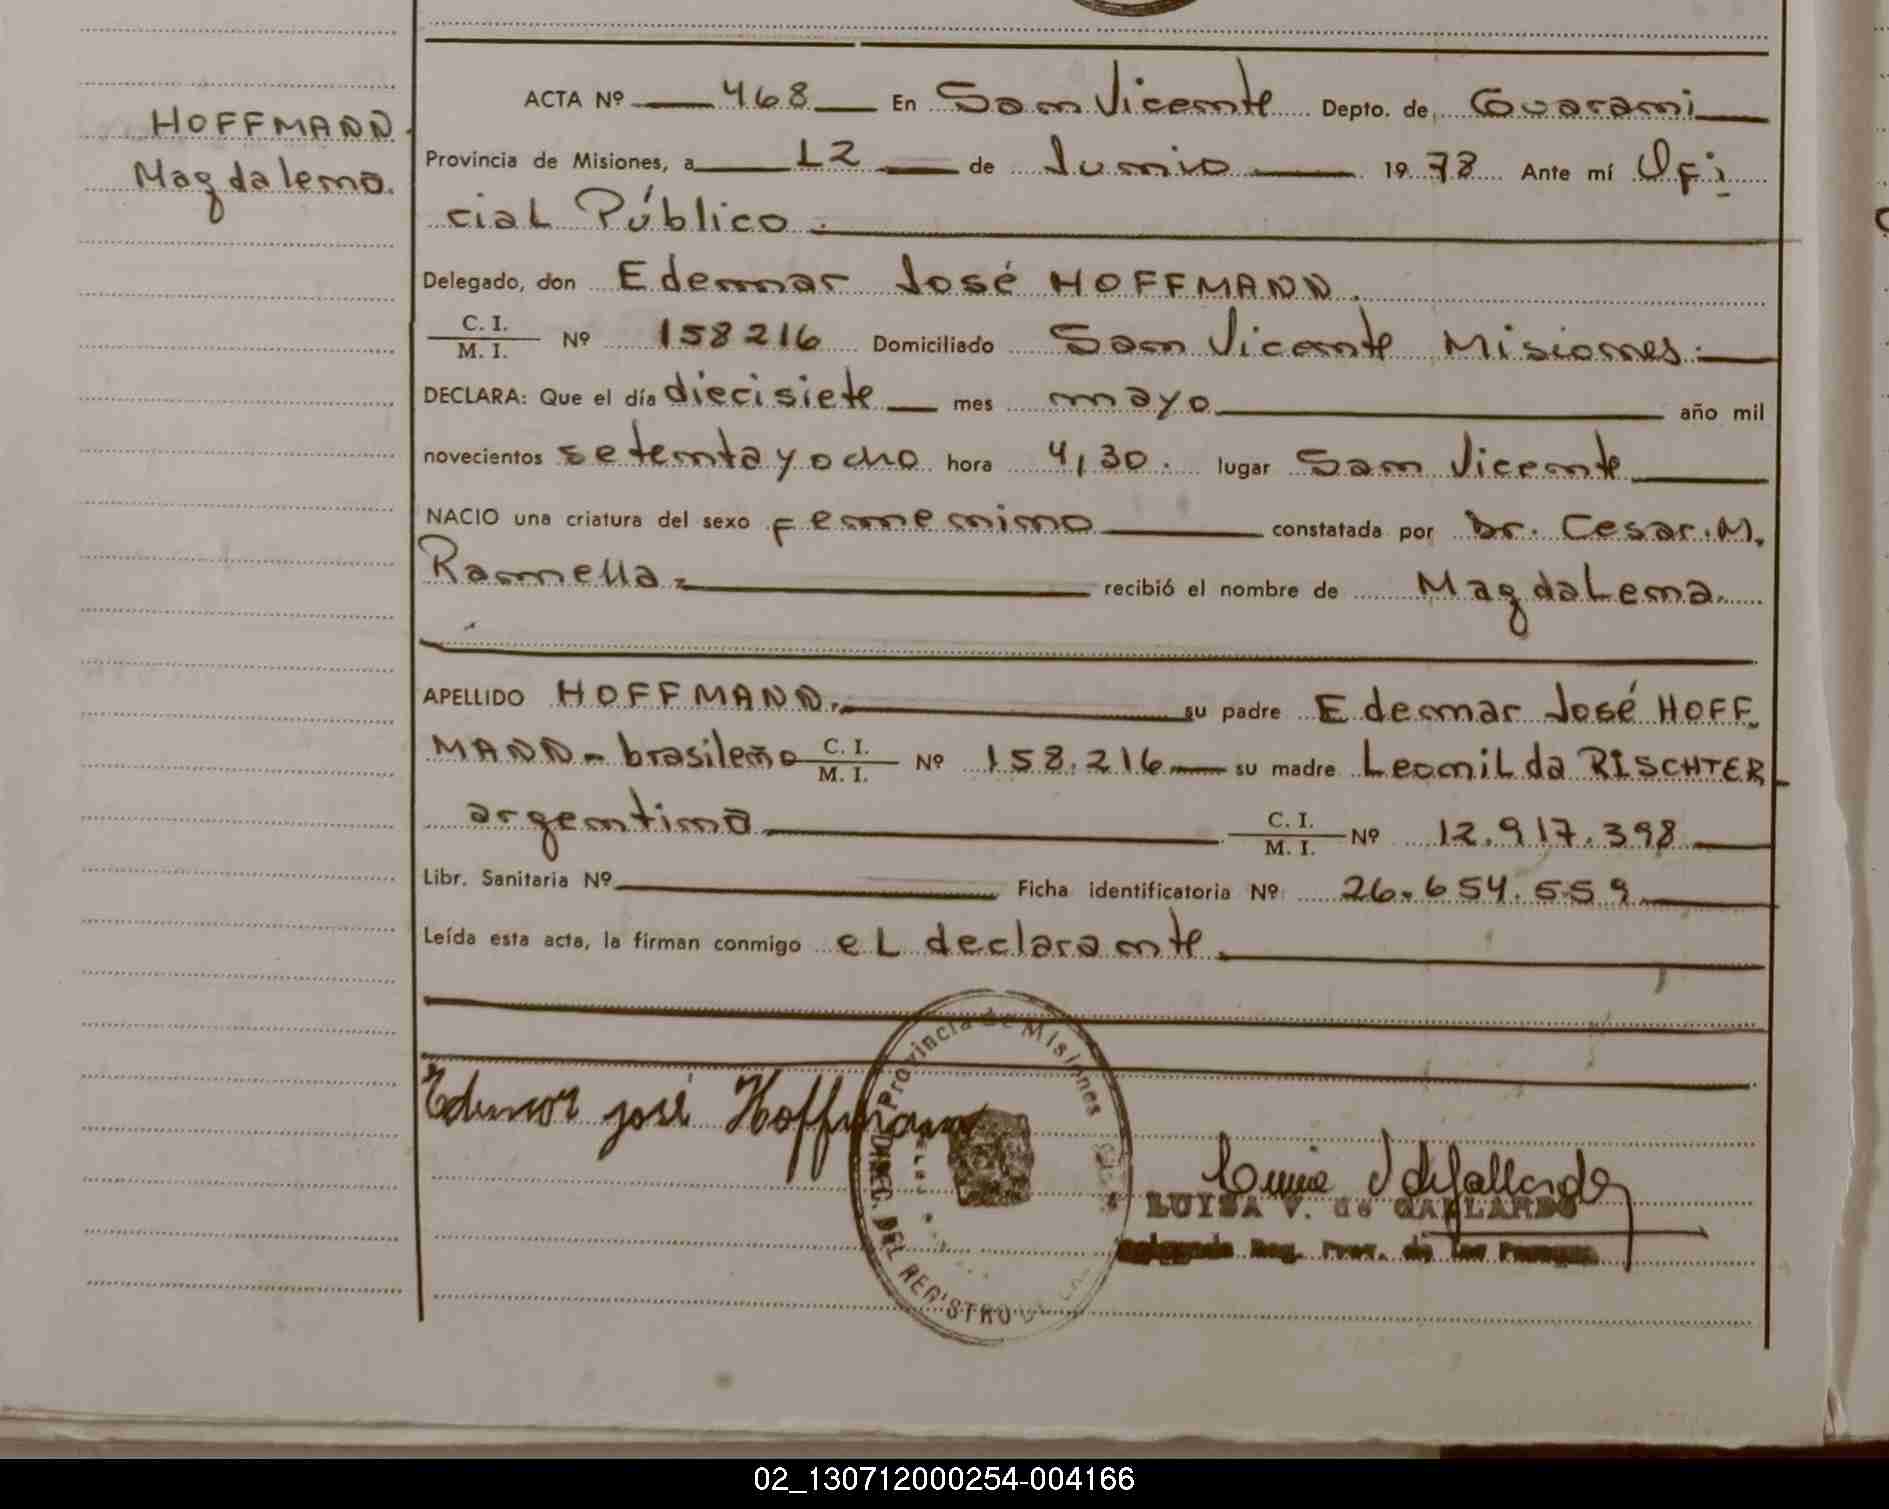 HOFFMANN
Magdalena.
ACTA Nº 468 En San Vicente Depto. de Guarani
Provincia de Misiones, a 12 de Junio 1978 Ante mí Ofi
cial Público.
Delegado, don Edemar José HOFFMANN.
C. I.
M. I. Nº 158216 Domiciliado San Vicente Misiones.
DECLARA: Que el día diecisiete mes mayo año mil
novecientos setenta y ocho hora 4,30. lugar San Vicente
NACIO una criatura del sexo femenino constatada por Dr. Cesar.M.
Ramella recibió el nombre de Magdalena.
APELLIDO HOFFMANN. su padre Edemar José HOFF
MANN - brasileño C. I. M. I. Nº 158.216 su madre Leonilda RISCHTER
argentina C. I. M. I. Nº 12.917.398
Libr. Sanitaria Nº Ficha identificatoria Nº 26.654.559
Leída esta acta, la firman conmigo el declarante.
Provincia de Misiones
DIREC. DEL REGISTRO
Edemar josé Hoffmann
LUISA V. de GALLARDO
Reg. Prov. de las Personas
02_130712000254-004166